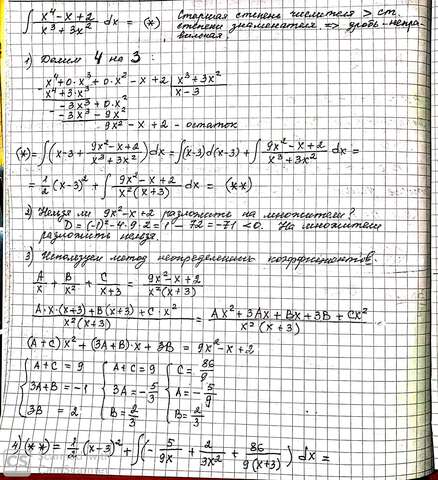 ∫ (x⁴ - x + 2)/(x³ + 3x²) dx = (*) Старшая степень числителя > ст.
степени знаменателя => дробь - непра-
вильная.
1) Делим 4 на 3:
x⁴ + 0·x³ + 0·x² - x + 2 | x³ + 3x²
x⁴ + 3·x³ | x - 3
- 3x³ + 0·x²
- 3x³ - 9x²
9x² - x + 2 - остаток
(*) = ∫ (x - 3 + (9x² - x + 2)/(x³ + 3x²)) dx = ∫ (x - 3) d(x - 3) + ∫ (9x² - x + 2)/(x³ + 3x²) dx =
= 1/2 (x - 3)² + ∫ (9x² - x + 2)/(x²(x + 3)) dx = (**)
2) Нельзя ли 9x² - x + 2 разложить на множители?
D = (-1)² - 4·9·2 = 1 - 72 = -71 < 0. На множители
разложить нельзя.
3) Используем метод неопределенных коэффициентов.
A/x + B/x² + C/(x + 3) = (9x² - x + 2)/(x²(x + 3))
(A·x·(x + 3) + B(x + 3) + C·x²)/(x²(x + 3)) = (Ax² + 3Ax + Bx + 3B + Cx²)/(x²(x + 3))
(A + C)x² + (3A + B)·x + 3B = 9x² - x + 2
{ A + C = 9 { A + C = 9 { C = 86/9
3A + B = -1 3A = -5/3 A = -5/9
3B = 2 B = 2/3 B = 2/3
4) (**) = 1/2 (x - 3)² + ∫ (- 5/(9x) + 2/(3x²) + 86/(9(x + 3))) dx =
CS